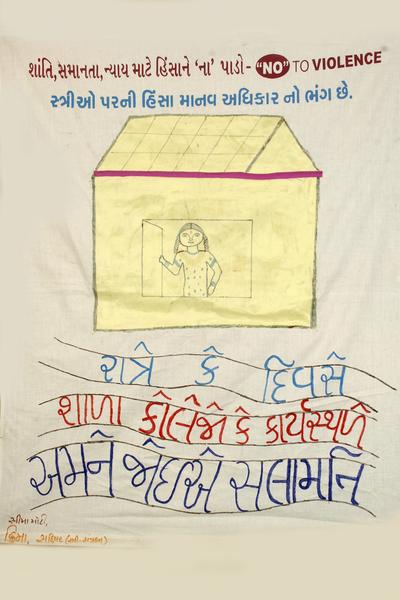 શાંતિ, સમાનતા, ન્યાય માટે હિંસાને ‘ના’ પાડો - “NO” TO VIOLENCE
સ્ત્રીઓ પરની હિંસા માનવ અધિકાર નો ભંગ છે.
રાત્રે કે દિવસે
શાળા કોલેજો કે કાર્યસ્થળે
અમને જોઇએ સલામતિ